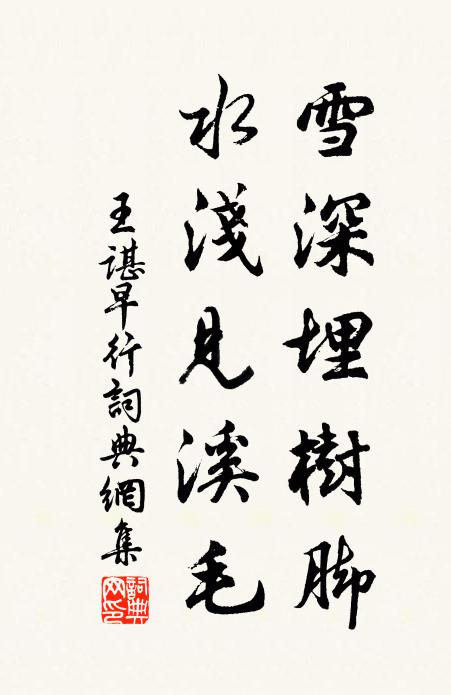 雪深埋樹脚
水淺見溪毛
王諶早行詞典網集
詞典
网印